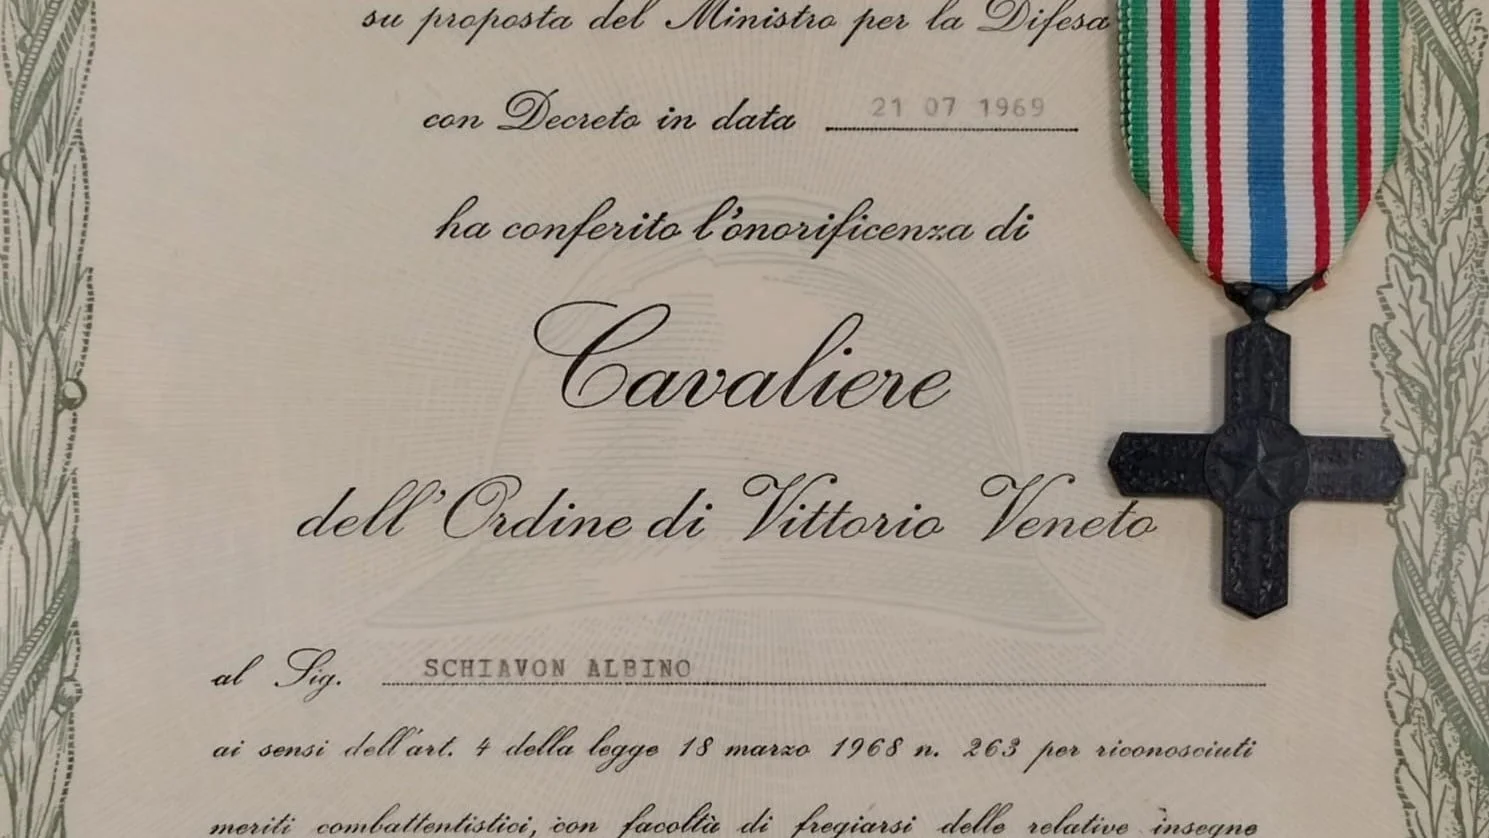 su proposta del Ministro per la Difesa
con Decreto in data 21 07 1969
ha conferito l'onorificenza di
Cavaliere
dell'Ordine di Vittorio Veneto
al Sig. SCHIAVON ALBINO
ai sensi dell'art. 4 della legge 18 marzo 1968 n. 263 per riconosciuti
meriti combattentistici, con facoltà di fregiarsi delle relative insegne